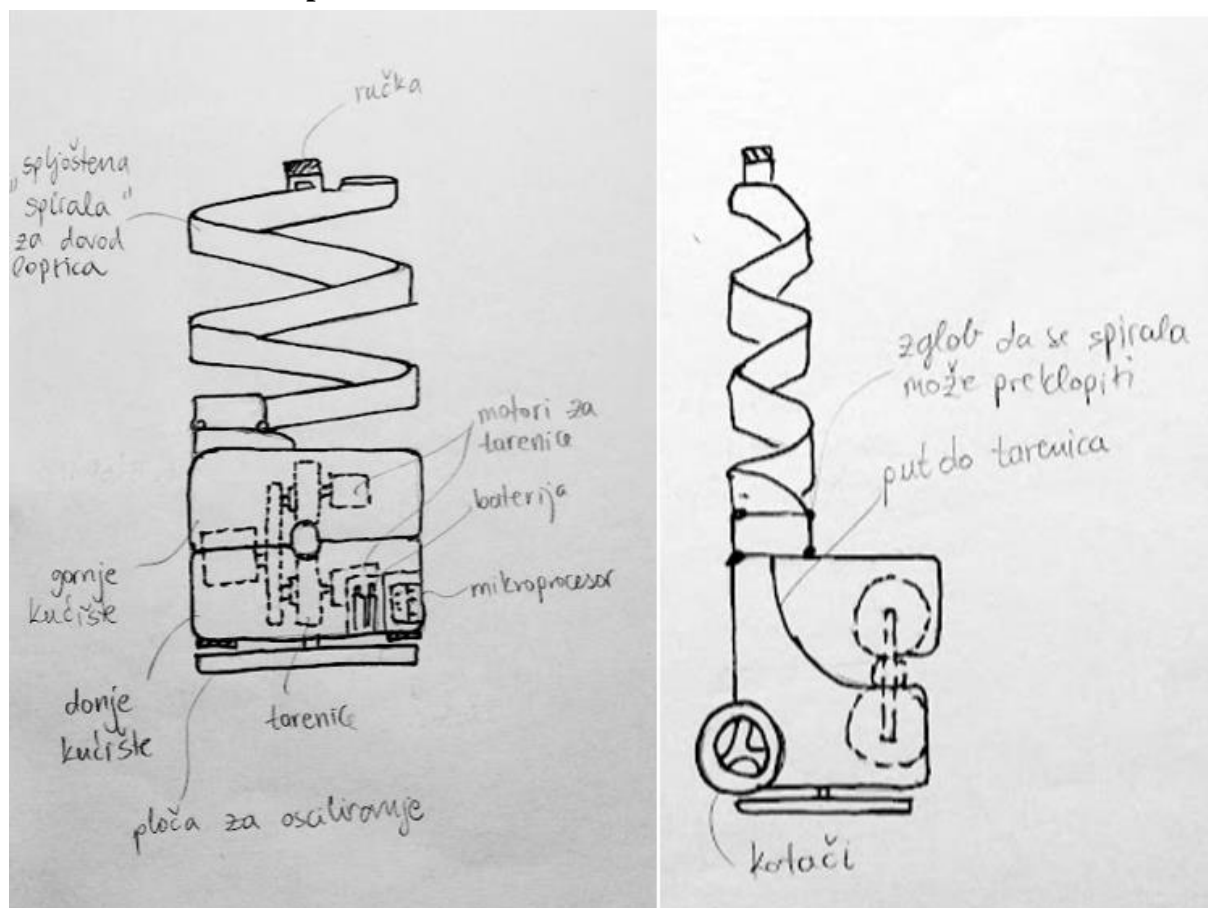 ručka
„spljoštena
spirala"
za dovod
loptica
motori za
tarenice
baterija
mikroprocesor
gornje
kućište
donje
kućište
tarenice
ploča za osciliranje
zglob da se spirala
može preklopiti
put do tarenica
kotači